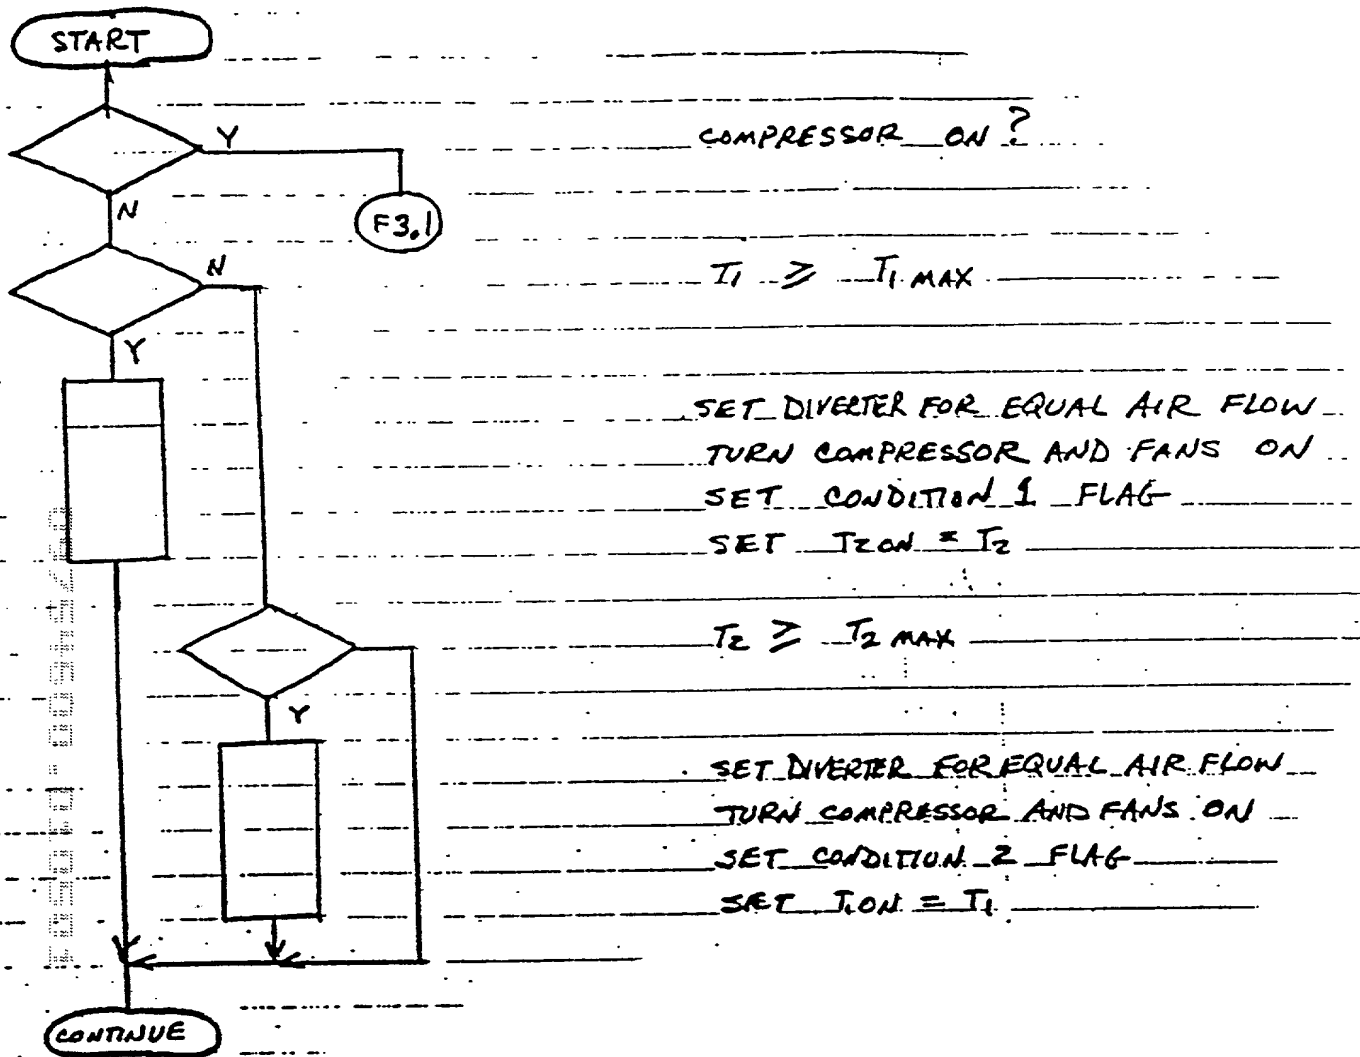 START
Y
COMPRESSOR ON?
N
F3.1
N
T1 ≥ T1 MAX
Y
SET DIVERTER FOR EQUAL AIR FLOW
TURN COMPRESSOR AND FANS ON
SET CONDITION 1 FLAG
SET T2ON = T2
T2 ≥ T2 MAX
Y
SET DIVERTER FOR EQUAL AIR FLOW
TURN COMPRESSOR AND FANS ON
SET CONDITION 2 FLAG
SET T1ON = T1
CONTINUE